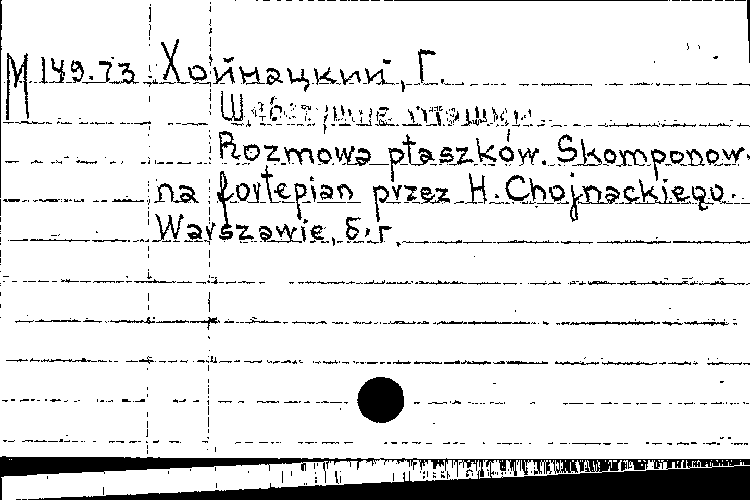 М 149.73 Хойнацкий, Г.
пташки
Rozmowa ptaszków. Skomponow.
na fortepian przez H. Chojnackiego.
Warszawie, б.г.